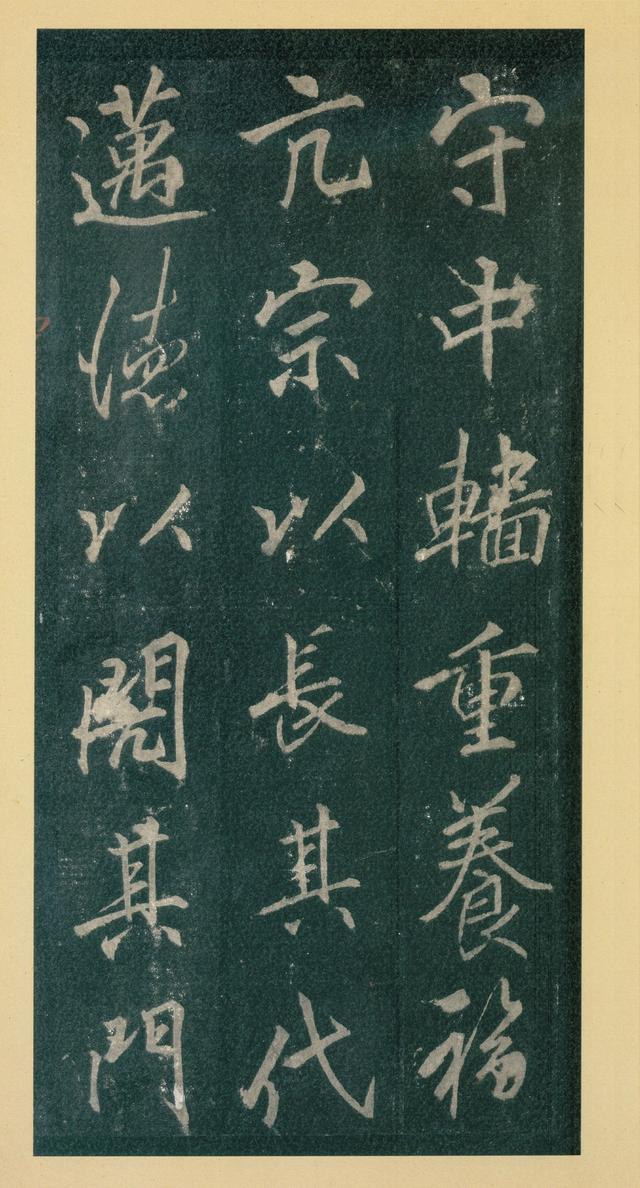 守中轖重養福
亢宗以長其代
邁德以閲其門